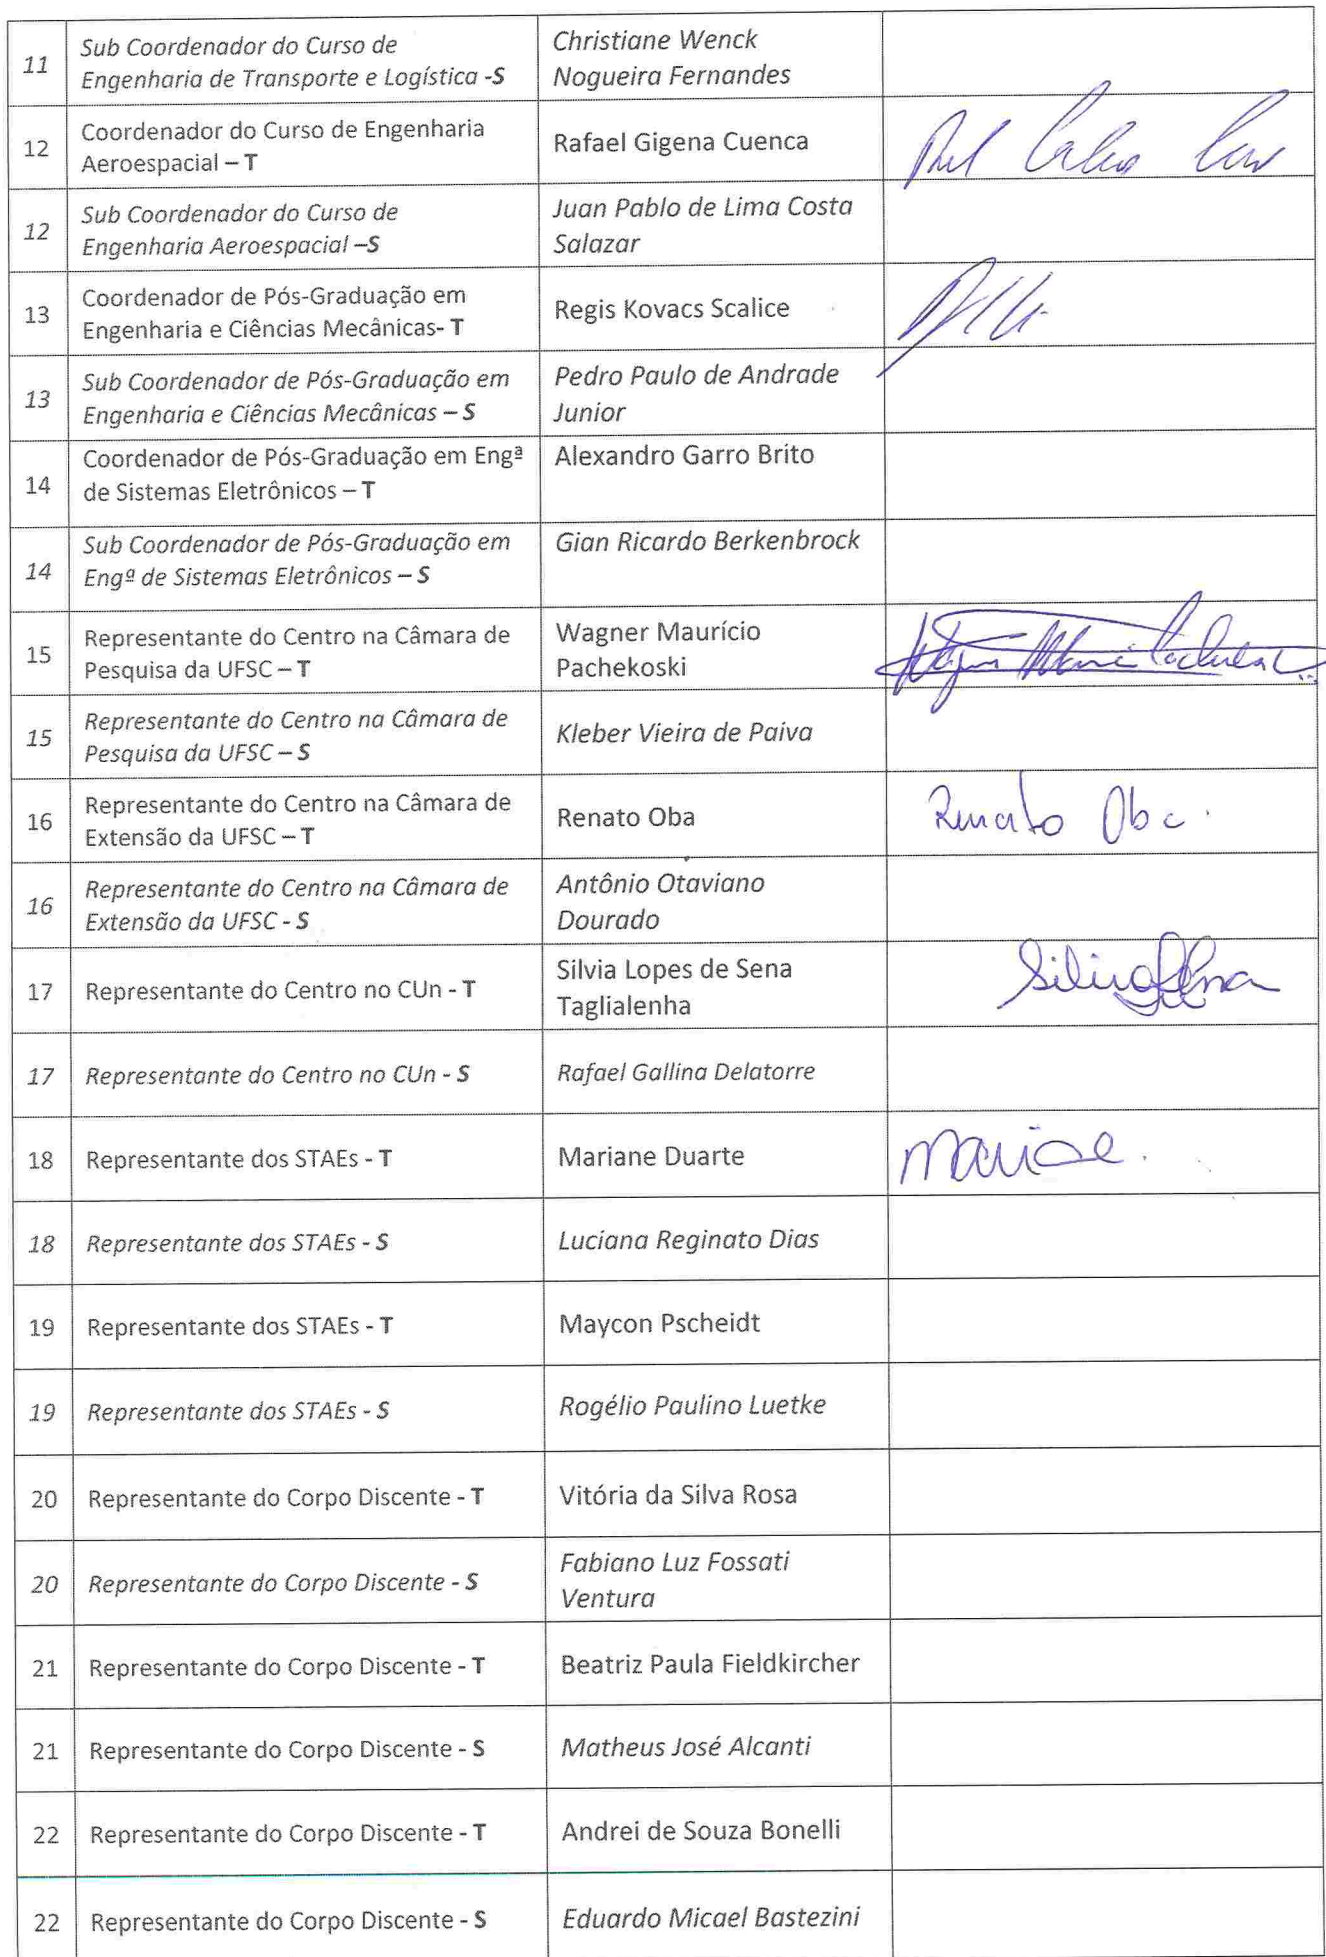 11 Sub Coordenador do Curso de Engenharia de Transporte e Logística -S Christiane Wenck Nogueira Fernandes
12 Coordenador do Curso de Engenharia Aeroespacial – T Rafael Gigena Cuenca
12 Sub Coordenador do Curso de Engenharia Aeroespacial –S Juan Pablo de Lima Costa Salazar
13 Coordenador de Pós-Graduação em Engenharia e Ciências Mecânicas- T Regis Kovacs Scalice
13 Sub Coordenador de Pós-Graduação em Engenharia e Ciências Mecânicas – S Pedro Paulo de Andrade Junior
14 Coordenador de Pós-Graduação em Engª de Sistemas Eletrônicos – T Alexandro Garro Brito
14 Sub Coordenador de Pós-Graduação em Engª de Sistemas Eletrônicos – S Gian Ricardo Berkenbrock
15 Representante do Centro na Câmara de Pesquisa da UFSC – T Wagner Maurício Pachekoski
15 Representante do Centro na Câmara de Pesquisa da UFSC – S Kleber Vieira de Paiva
16 Representante do Centro na Câmara de Extensão da UFSC – T Renato Oba Renato Oba
16 Representante do Centro na Câmara de Extensão da UFSC - S Antônio Otaviano Dourado
17 Representante do Centro no CUn - T Silvia Lopes de Sena Taglialenha
17 Representante do Centro no CUn - S Rafael Gallina Delatorre
18 Representante dos STAEs - T Mariane Duarte
18 Representante dos STAEs - S Luciana Reginato Dias
19 Representante dos STAEs - T Maycon Pscheidt
19 Representante dos STAEs - S Rogélio Paulino Luetke
20 Representante do Corpo Discente - T Vitória da Silva Rosa
20 Representante do Corpo Discente - S Fabiano Luz Fossati Ventura
21 Representante do Corpo Discente - T Beatriz Paula Fieldkircher
21 Representante do Corpo Discente - S Matheus José Alcanti
22 Representante do Corpo Discente - T Andrei de Souza Bonelli
22 Representante do Corpo Discente - S Eduardo Micael Bastezini